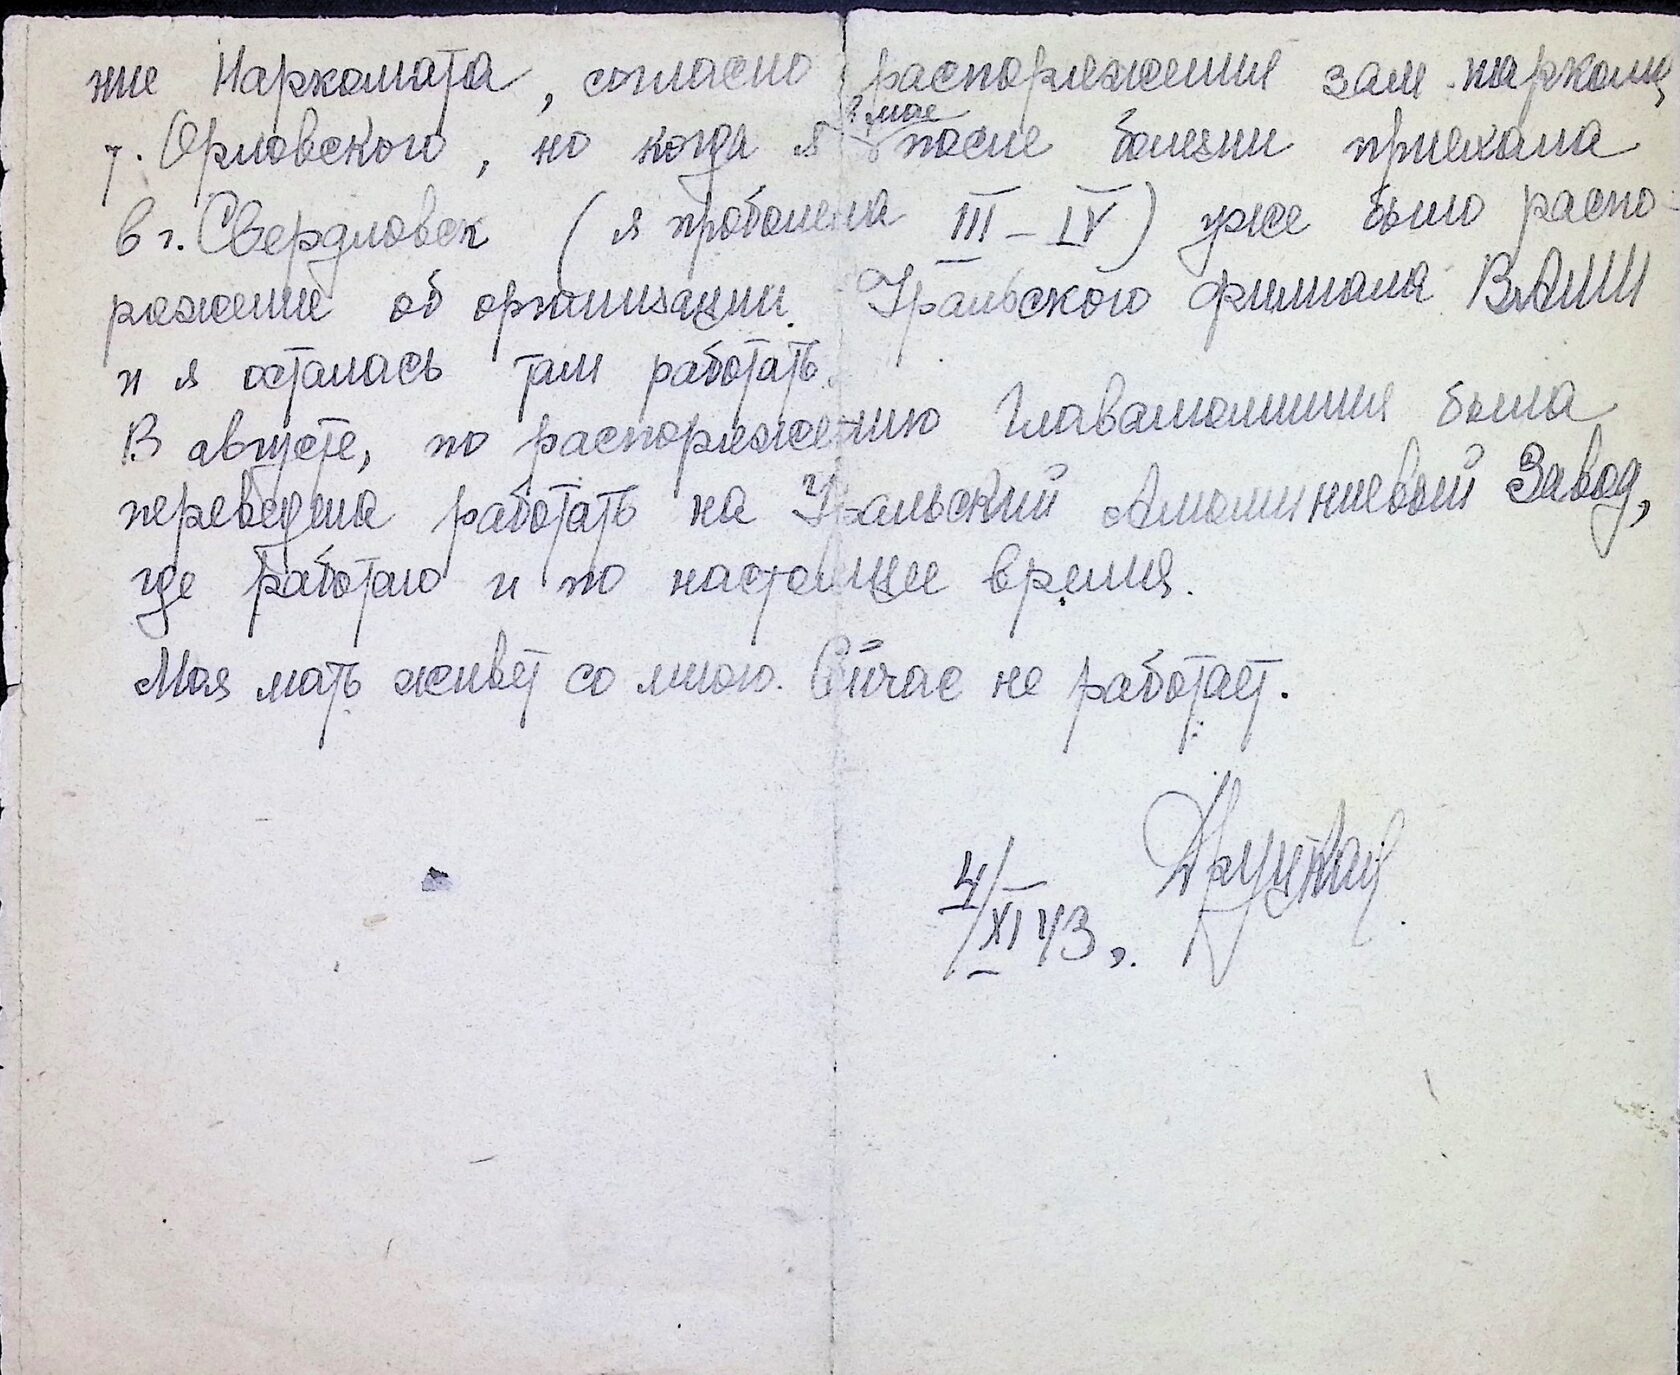 ние Наркомата, согласно распоряжения зам. наркома
т. Орловского, но когда я в мае после болезни приехала
в г. Свердловск (я проболела III – IV) уже было распо-
ряжение об организации Уральского филиала ВАМИ
и я осталась там работать.
В августе, по распоряжению Главалюминия была
переведена работать на Уральский Алюминиевый Завод,
где работаю и по настоящее время.
Моя мать живет со мною. Сейчас не работает.
4/XI 43 г.